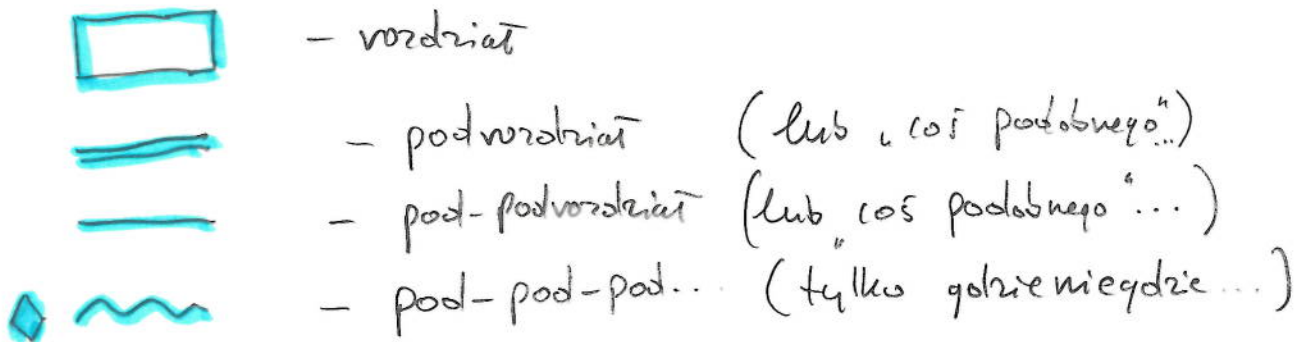 - rozdział
- podrozdział (lub „coś podobnego"...)
- pod-podrozdział (lub „coś podobnego"...)
- pod-pod-pod... (tylko gdzieniegdzie...)